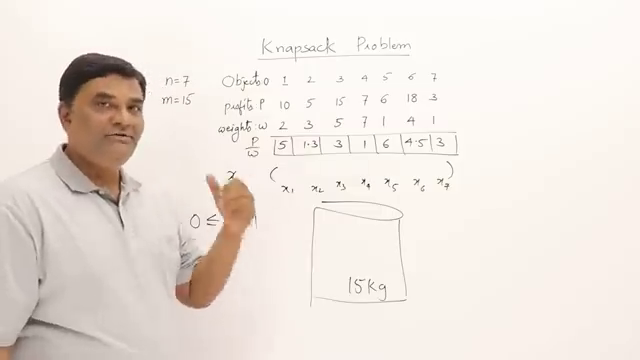 Knapsack Problem
n=7 Objects:O 1 2 3 4 5 6 7
m=15 profits:P 10 5 15 7 6 18 3
weights:w 2 3 5 7 1 4 1
P/w 5 1.3 3 1 6 4.5 3
x ( x₁ x₂ x₃ x₄ x₅ x₆ x₇ )
0 ≤
15Kg